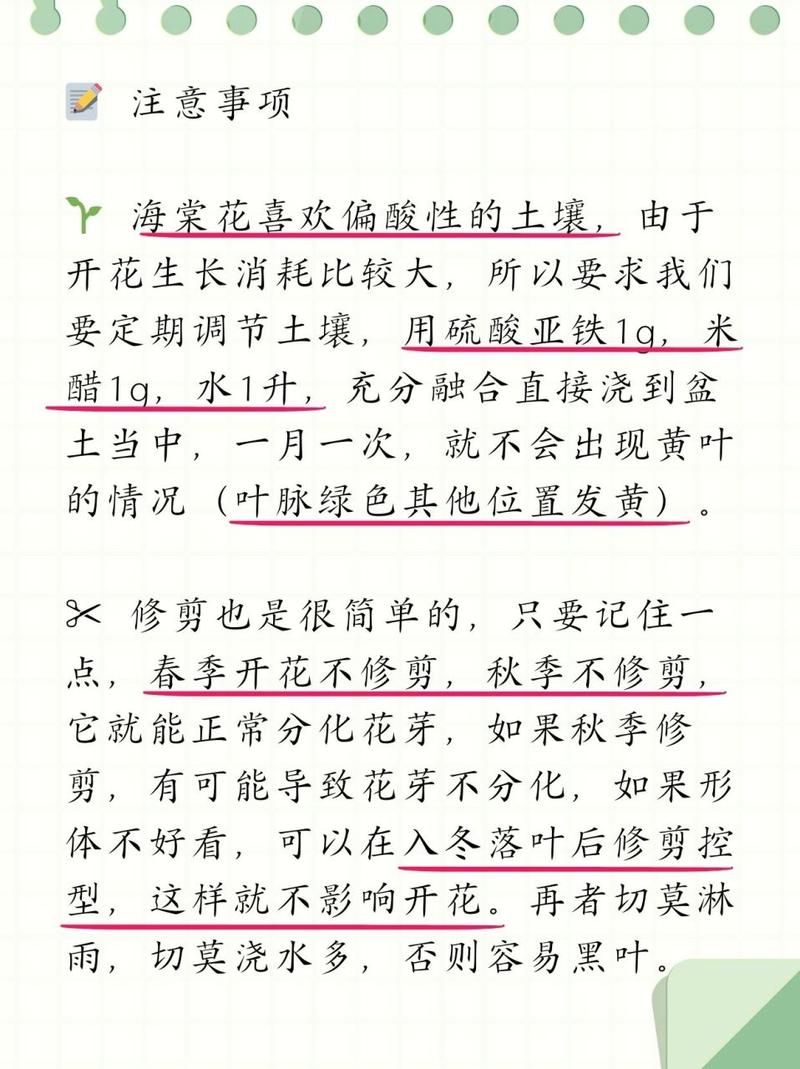 注意事项
海棠花喜欢偏酸性的土壤，由于
开花生长消耗比较大，所以要求我们
要定期调节土壤，用硫酸亚铁1g，米
醋1g，水1升，充分融合直接浇到盆
土当中，一月一次，就不会出现黄叶
的情况（叶脉绿色其他位置发黄）。
修剪也是很简单的，只要记住一
点，春季开花不修剪，秋季不修剪，
它就能正常分化花芽，如果秋季修
剪，有可能导致花芽不分化，如果形
体不好看，可以在入冬落叶后修剪控
型，这样就不影响开花。再者切莫淋
雨，切莫浇水多，否则容易黑叶。